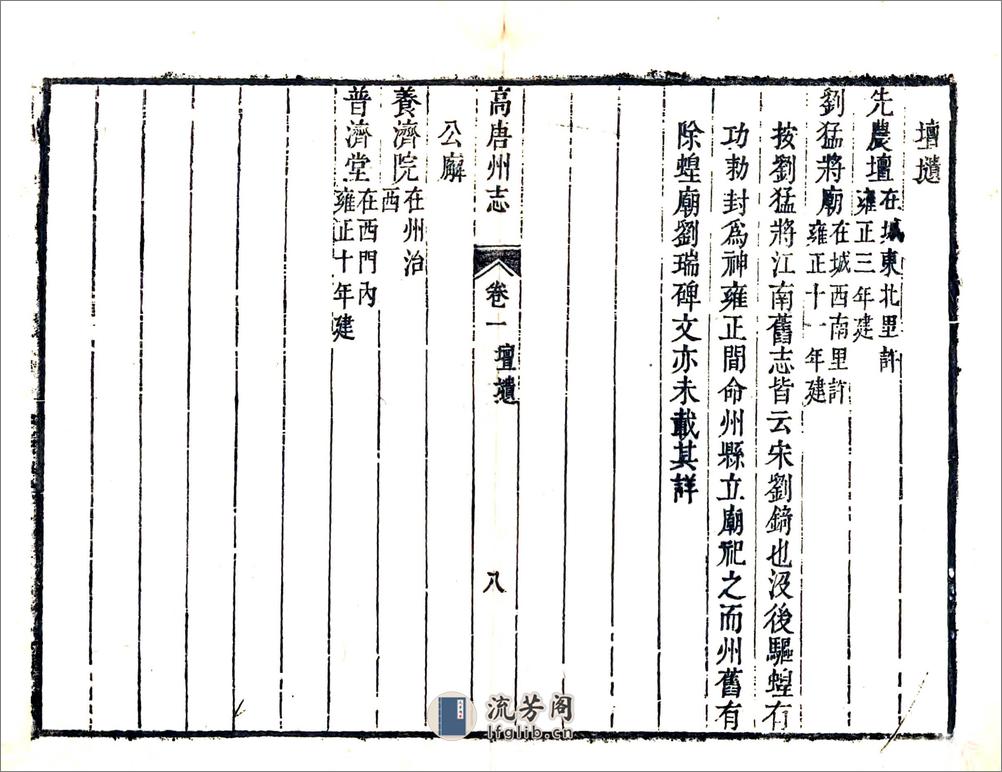 壇壝
先農壇在城東北里許
雍正三年建
劉猛將廟在城西南里許
雍正十一年建
按劉猛將江南舊志皆云宋劉錡也沒後驅蝗有
功勅封爲神雍正間命州縣立廟祀之而州舊有
除蝗廟劉瑞碑文亦未載其詳
高唐州志
卷一
壇壝
八
公廨
養濟院在州治
西
普濟堂在西門內
雍正十年建
流芳阁
lfglib.cn